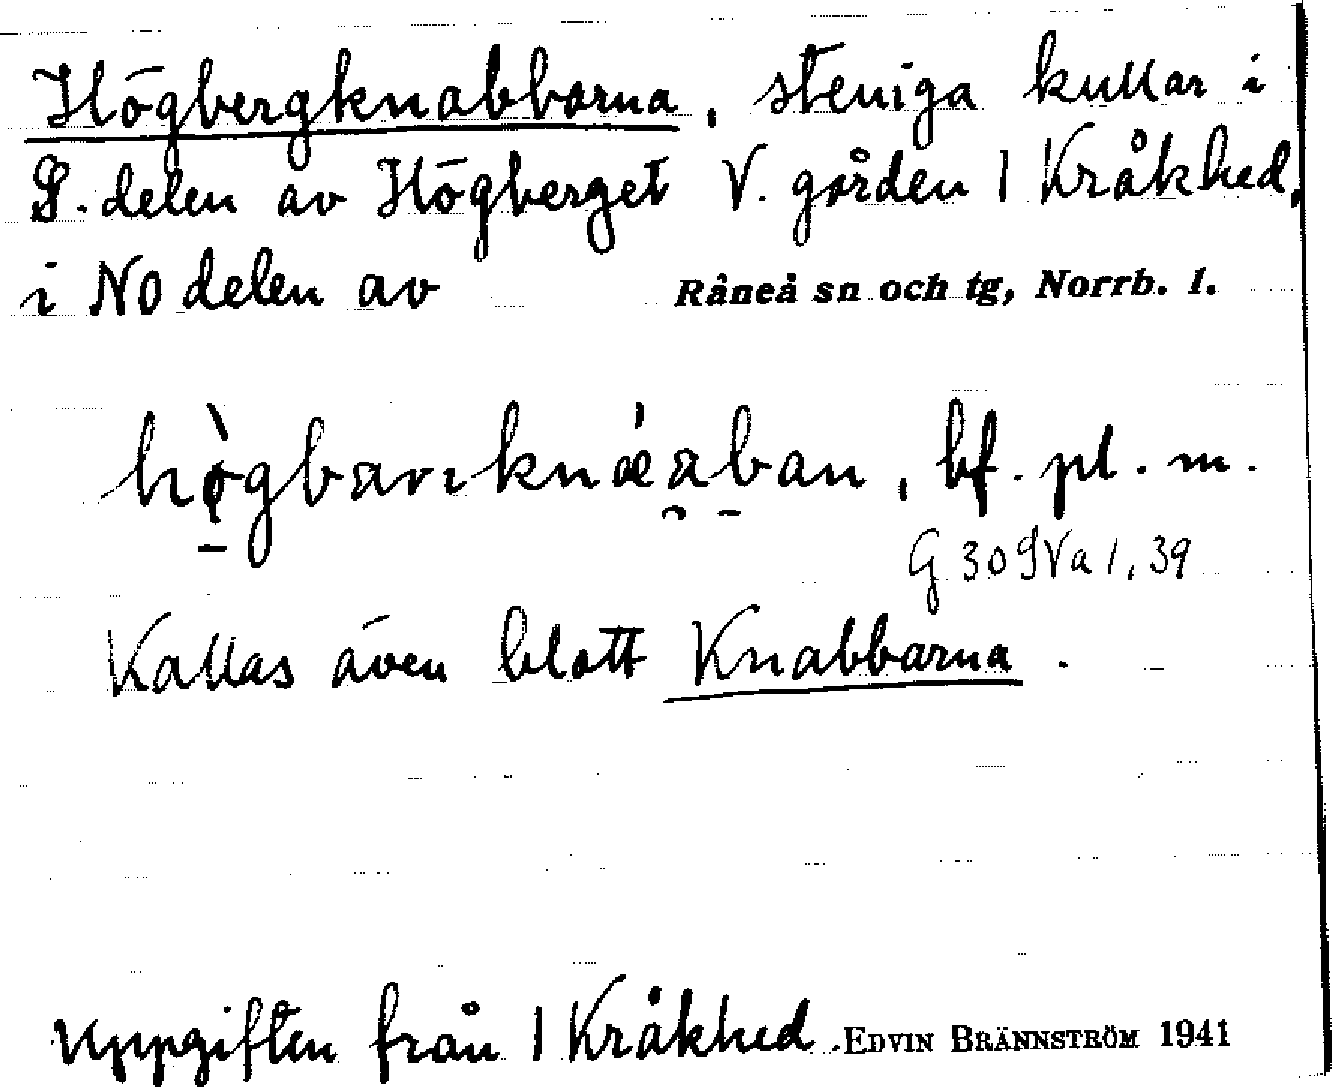 Högbergknabbarna, steniga kullar i
S. delen av Högberget V. gården 1 Kråkhed,
i NO delen av Råneå sn och tg, Norrb. l.
bf. pl. m.
G 309Va 1, 39
Kallas även blott Knabbarna.
Uppgiften från 1 Kråkhed. EDVIN BRÄNNSTRÖM 1941